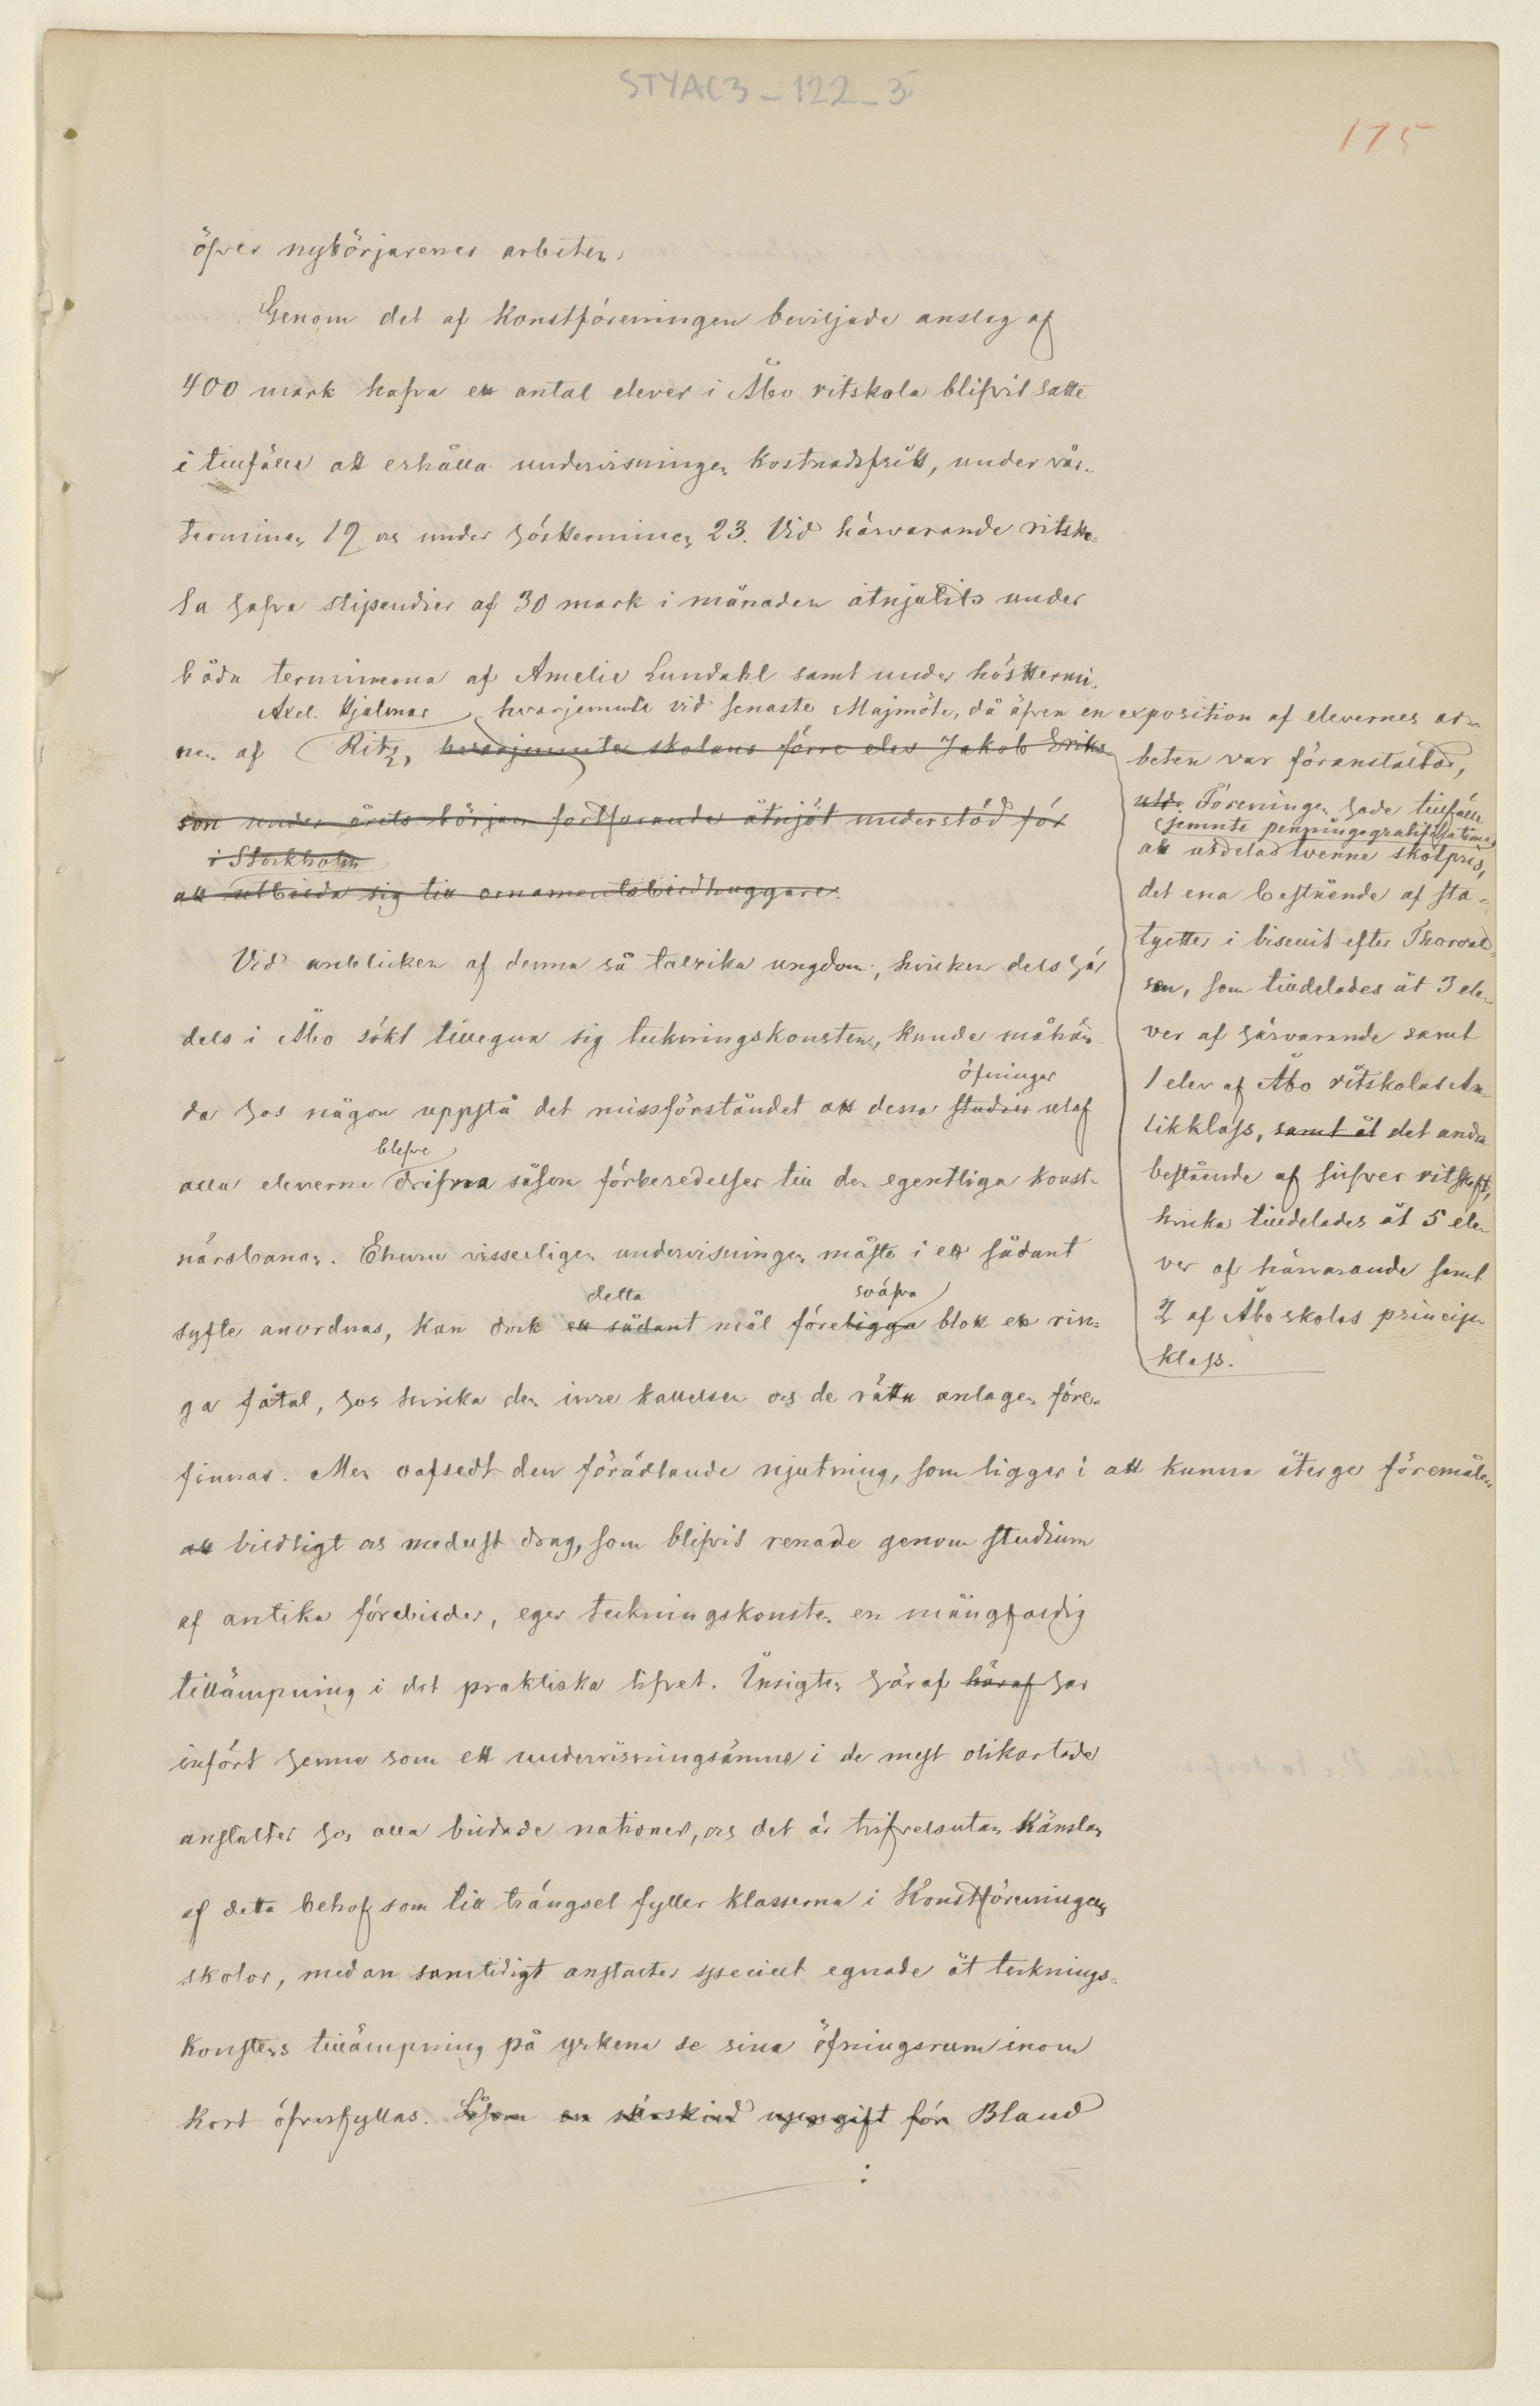 STYAC3-122-3
175
öfver nybörjarenes arbeten.
Genom det af Konstföreningen beviljade anslag af
400 mark hafva ett antal elever i Åbo ritskola blifvit satte
i tillfälle att erhålla undervisningen kostnadsfritt, under vår-
terminen 19 och under höstterminen 23. Vid härvarande ritsko-
la hafva stipendier af 30 mark i månaden åtnjutits under
båda terminerna af Amelie Lundahl samt under hösttermi-
Axel Hjalmar
nen af Ritz, hvarjemnte skolans förre elev Jakob Eriks-
son under årets början fortfarande åtnjöt understöd för
i Stockholm
att utbilda sig till ornamentsbildhuggare.
hvarjemnte vid senaste Majmöte, då äfven en exposition af elevernes ar-
beten var föranstaltad,
utde Föreningen hade tillfälle
jemnte penningegratifikationer
att utdelad tvenne slötpris,
det ena bestående af sta-
tyetter i biscuit efter Thorvald-
sen, som tilldelades åt 3 ele-
ver af härvarande samt
1 elev af Åbo ritskolas An-
tikklass, samt åt det andra
bestående af silfver ritstift,
hvilka tilldelades åt 5 ele-
ver af härvarande samt
2 af Åbo skolas princip-
klass.
Vid anblicken af denna så talrika ungdom, hvilken dels här
dels i Åbo sökt tillegna sig teckningskonsten, kunde måhän-
öfningar
da hos någon uppstå det missförståndet att dessa studier utaf
blefve
alla eleverna drifna såsom förberedelser till den egentliga konst-
närsbanan. Ehuru visserligen undervisningen måste i ett sådant
detta sväfva
syfte anordnas, kan dock ett sådant mål föreligga blott ett rin-
ga fåtal, hos hvilka den inre kallelsen och de rätta anlagen före-
finnas. Men oafsedt den förädlande njutning, som ligger i att kunna återge föremålen
att bildligt och medelst drag, som blifvit renade genom studium
af antika förebilder, eger teckningskonsten en mångfaldig
tillämpning i det praktiska lifvet. Insigten häraf häraf har
infört henne som ett undervisningsämne i de mest olikartade
anstalter hos alla bildade nationer, och det är tvifvelsutan känslan
af detta behof som till trängsel fyller klasserna i Konstföreningens
skolor, medan samtidigt anstalter speciellt egnade åt tecknings-
konstens tillämpning på yrkena se sina öfningsrum inom
kort öfverfyllas. Såsom en särskild uppgift för Bland